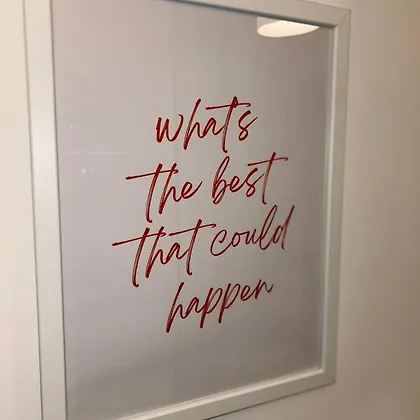 what's
the best
that could
happen